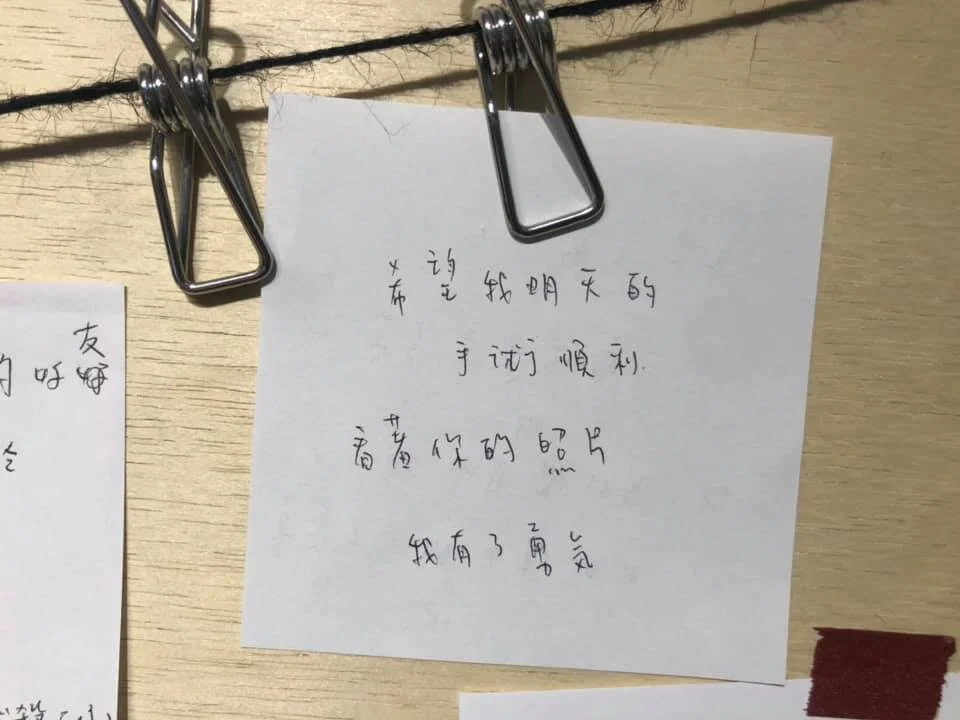 希望我明天的
手術順利.
看著你的照片
我有了勇氣
友